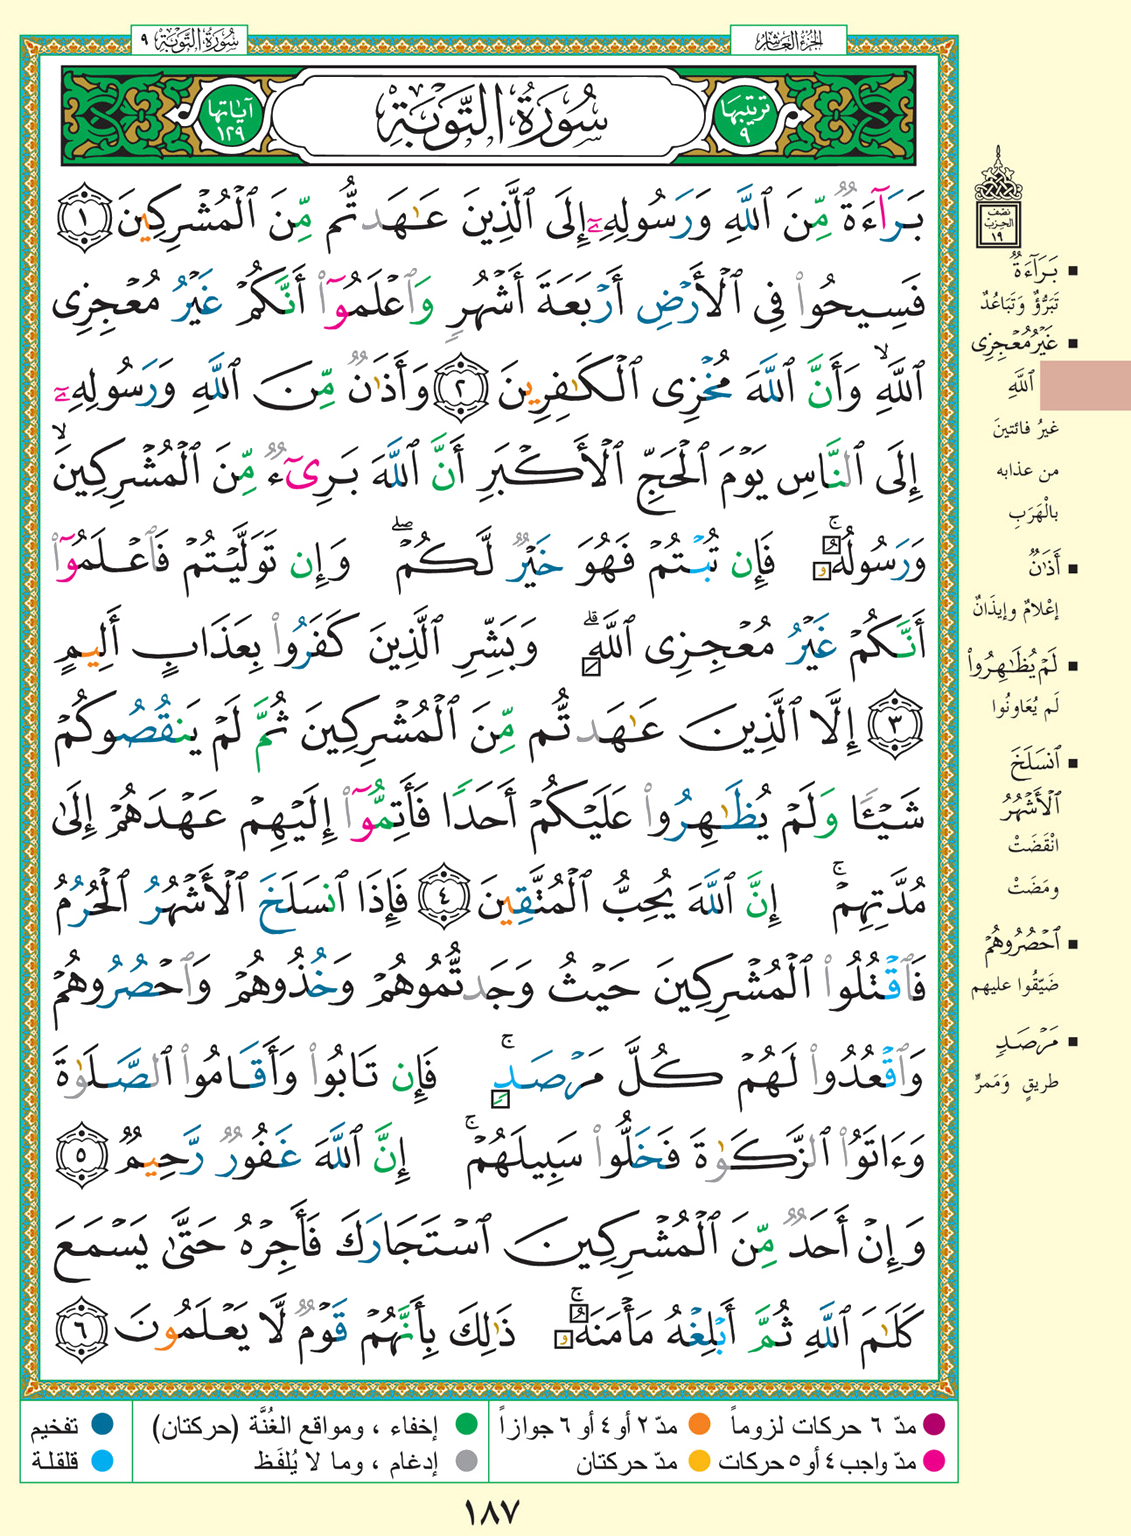 الجزء العاشر
سورة التوبة ٩
ترتيبها ٩
سُورَةُ التَّوْبَةِ
آياتها ١٢٩
بَرَآءَةٌ مِّنَ ٱللَّهِ وَرَسُولِهِۦٓ إِلَى ٱلَّذِينَ عَـٰهَدتُّم مِّنَ ٱلْمُشْرِكِينَ ١
فَسِيحُوا۟ فِى ٱلْأَرْضِ أَرْبَعَةَ أَشْهُرٍ وَٱعْلَمُوٓا۟ أَنَّكُمْ غَيْرُ مُعْجِزِى
ٱللَّهِ ۙ وَأَنَّ ٱللَّهَ مُخْزِى ٱلْكَـٰفِرِينَ ٢ وَأَذَٰنٌ مِّنَ ٱللَّهِ وَرَسُولِهِۦٓ
إِلَى ٱلنَّاسِ يَوْمَ ٱلْحَجِّ ٱلْأَكْبَرِ أَنَّ ٱللَّهَ بَرِىٓءٌ مِّنَ ٱلْمُشْرِكِينَ ۙ
وَرَسُولُهُۥ ۚ فَإِن تُبْتُمْ فَهُوَ خَيْرٌ لَّكُمْ ۖ وَإِن تَوَلَّيْتُمْ فَٱعْلَمُوٓا۟
أَنَّكُمْ غَيْرُ مُعْجِزِى ٱللَّهِ ۗ وَبَشِّرِ ٱلَّذِينَ كَفَرُوا۟ بِعَذَابٍ أَلِيمٍ
٣ إِلَّا ٱلَّذِينَ عَـٰهَدتُّم مِّنَ ٱلْمُشْرِكِينَ ثُمَّ لَمْ يَنقُصُوكُمْ
شَيْـًٔا وَلَمْ يُظَـٰهِرُوا۟ عَلَيْكُمْ أَحَدًا فَأَتِمُّوٓا۟ إِلَيْهِمْ عَهْدَهُمْ إِلَىٰ
مُدَّتِهِمْ ۚ إِنَّ ٱللَّهَ يُحِبُّ ٱلْمُتَّقِينَ ٤ فَإِذَا ٱنسَلَخَ ٱلْأَشْهُرُ ٱلْحُرُمُ
فَٱقْتُلُوا۟ ٱلْمُشْرِكِينَ حَيْثُ وَجَدتُّمُوهُمْ وَخُذُوهُمْ وَٱحْصُرُوهُمْ
وَٱقْعُدُوا۟ لَهُمْ كُلَّ مَرْصَدٍ ۚ فَإِن تَابُوا۟ وَأَقَامُوا۟ ٱلصَّلَوٰةَ
وَءَاتَوُا۟ ٱلزَّكَوٰةَ فَخَلُّوا۟ سَبِيلَهُمْ ۚ إِنَّ ٱللَّهَ غَفُورٌ رَّحِيمٌ ٥
وَإِنْ أَحَدٌ مِّنَ ٱلْمُشْرِكِينَ ٱسْتَجَارَكَ فَأَجِرْهُ حَتَّىٰ يَسْمَعَ
كَلَـٰمَ ٱللَّهِ ثُمَّ أَبْلِغْهُ مَأْمَنَهُۥ ۚ ذَٰلِكَ بِأَنَّهُمْ قَوْمٌ لَّا يَعْلَمُونَ ٦
نصف
الحزب
١٩
بَرَآءَةٌ
تَبَرُّؤٌ وَتَبَاعُدٌ
غَيْرُ مُعْجِزِى
ٱللَّهِ
غيرُ فائتينَ
من عذابه
بالْهَرَبِ
أَذَٰنٌ
إعْلامٌ وإيذَانٌ
لَمْ يُظَـٰهِرُوا۟
لَم يُعَاونُوا
ٱنسَلَخَ
ٱلْأَشْهُرُ
انْقَضَتْ
ومَضَتْ
ٱحْصُرُوهُمْ
ضَيّقُوا عليهم
مَرْصَدٍ
طريقٍ وَمَمرٍّ
مدّ ٦ حركات لزوماً
مدّ ٢ أو ٤ أو ٦ جوازاً
إخفاء ، ومواقع الغُنَّة (حركتان)
تفخيم
مدّ واجب ٤ أو ٥ حركات
مدّ حركتان
إدغام ، وما لا يُلفَظ
قلقلة
١٨٧